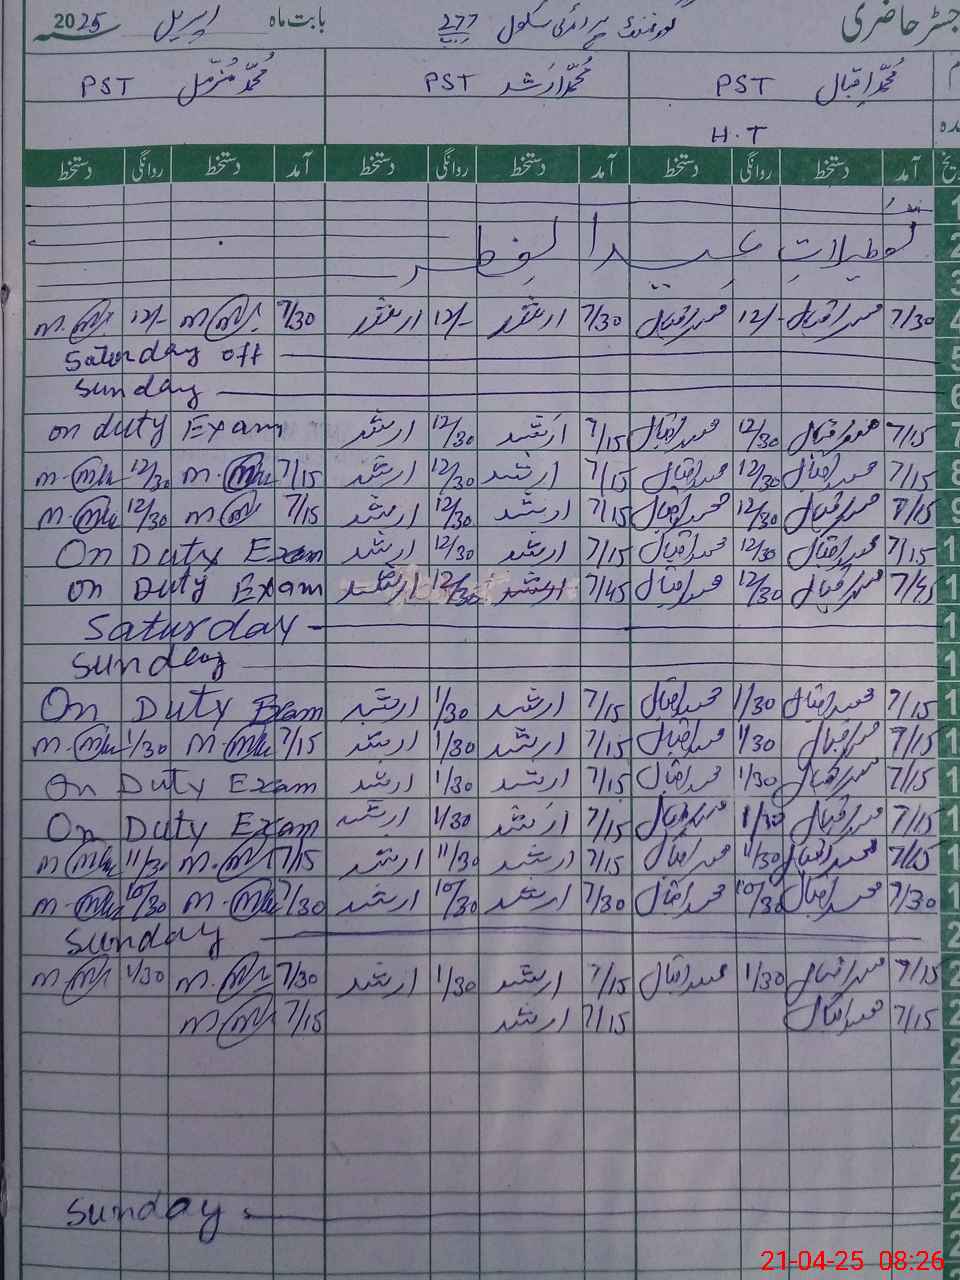 جسٹر حاضری گورنمنٹ پرائمری سکول 277 بابت ماہ اپریل 2025
محمد اقبال PST محمد ارشد PST محمد مزمل PST
دہ H.T
آمد دستخط روانگی دستخط آمد دستخط روانگی دستخط آمد دستخط روانگی دستخط
1
2 تعطیلات عید الفطر
3
4 7/30 محمد اقبال 12/- محمد اقبال 7/30 ارشد 12/- ارشد 7/30 12/-
5 Saturday off
6 Sunday
7 7/15 محمد اقبال 12/30 محمد اقبال 7/15 ارشد 12/30 ارشد on duty Exam
8 7/15 محمد اقبال 12/30 محمد اقبال 7/15 ارشد 12/30 ارشد 7/15 12/30
9 7/15 محمد اقبال 12/30 محمد اقبال 7/15 ارشد 12/30 ارشد 7/15 12/30
1 7/15 محمد اقبال 12/30 محمد اقبال 7/15 ارشد 12/30 ارشد On Duty Exam
1 7/45 محمد اقبال 12/30 محمد اقبال 7/45 ارشد 12/30 ارشد on Duty Exam
1 Saturday
1 Sunday
1 7/15 محمد اقبال 1/30 محمد اقبال 7/15 ارشد 1/30 ارشد On Duty Exam
1 7/15 محمد اقبال 1/30 محمد اقبال 7/15 ارشد 1/30 ارشد 7/15 1/30
1 7/15 محمد اقبال 1/30 محمد اقبال 7/15 ارشد 1/30 ارشد On Duty Exam
1 7/15 محمد اقبال 1/30 محمد اقبال 7/15 ارشد 1/30 ارشد On Duty Exam
1 7/15 محمد اقبال 11/30 محمد اقبال 7/15 ارشد 11/30 ارشد 7/15 11/30
1 7/30 محمد اقبال 10/30 محمد اقبال 7/30 ارشد 10/30 ارشد 7/30 10/30
2 Sunday
2 7/15 محمد اقبال 1/30 محمد اقبال 7/15 ارشد 1/30 ارشد 7/30 1/30
2 7/15 محمد اقبال 7/15 ارشد 7/15
2
2
2
2
2 Sunday
2
21-04-25 08:26